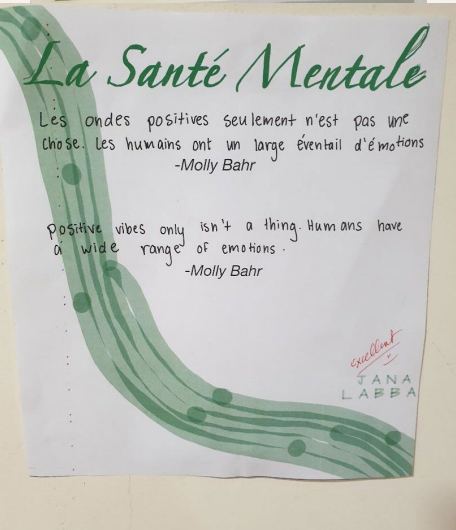 La Santé Mentale
Les ondes positives seulement n'est pas une
chose. Les humains ont un large éventail d'émotions
-Molly Bahr
positive vibes only isn't a thing. Humans have
a wide range of emotions.
-Molly Bahr
excellent
JANA
LABBA